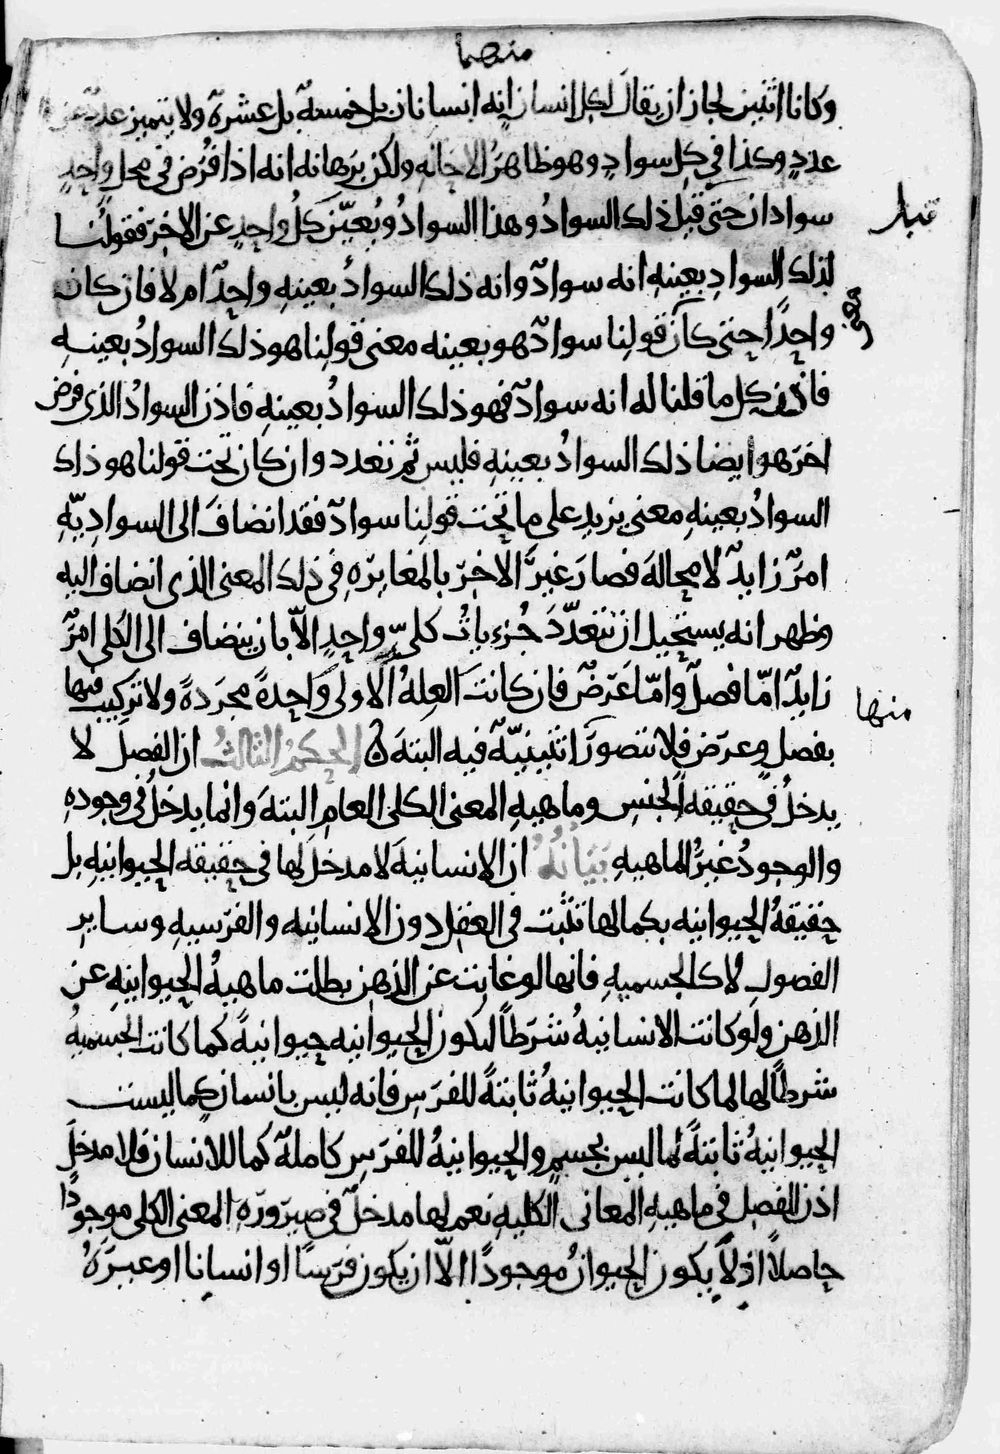 منهما
وكانا اثنين لجاز ان يقال لكل انسان انه انسانان بل خمسة بل عشرة ولا يتميز عدد عن
عدد وكذا في كل سواد وهو ظاهر الاحالة ولكن برهانه انه اذا فرض في محل واحد
سوادان حتى قيل ذلك السواد وهذا السواد ويعيّن كل واحد عن الاخر فقولنا
لذلك السواد بعينه انه سواد وانه ذلك السواد بعينه واحد ام لا فان كان
واحدًا حتى كان قولنا سواد هو بعينه معنى قولنا هو ذلك السواد بعينه
فاذن كل ما قلنا له انه سواد فهو ذلك السواد بعينه فاذن السواد الذى فرض
اخر هو ايضا ذلك السواد بعينه فليس ثم تعدد وان كان تحت قولنا هو ذلك
السواد بعينه معنى يزيد على ما تحت قولنا سواد فقد انضاف الى السواديّة
امر زايد لا محالة فصار غير الاخر بالمغايرة في ذلك المعنى الذى انضاف اليه
فظهر انه يستحيل ان تتعدّد جزءيات كليّ واحد الاّ بان ينضاف الى الكلى امر
زايد امّا فصل وامّا عرض فان كانت العلة الاولى واحدة مجردة ولا تركيب فيها
بفصل وعرض فلا تتصور اثنينيّة فيه البتة الحكم الثالث ان الفصل لا
يدخل في حقيقة الجنس وماهية المعنى الكلى العام البتة وانما يدخل في وجوده
والوجود غير الماهية بيانه ان الانسانية لا مدخل لها في حقيقة الحيوانية بل
حقيقة الحيوانية بكمالها تثبت في العقل دون الانسانية والفرسية وساير
الفصول لا كالجسمية فانها لو غابت عن الذهن بطلت ماهية الحيوانية عن
الذهن ولو كانت الانسانية شرطاً لتكون الحيوانية حيوانية كما كانت الجسمية
شرطاً لها لما كانت الحيوانية ثابتة للفرس فانه ليس بانسان كما ليست
الحيوانية ثابتة لما ليس بجسم والحيوانية للفرس كاملة كما للانسان فلا مدخل
اذن للفصل في ماهية المعانى الكلية نعم لها مدخل في صيرورة المعنى الكلى موجودًا
حاصلاً اذ لا يكون الحيوان موجودًا الاّ ان يكون فرسًا او انسانا او غيره
معنى
منها